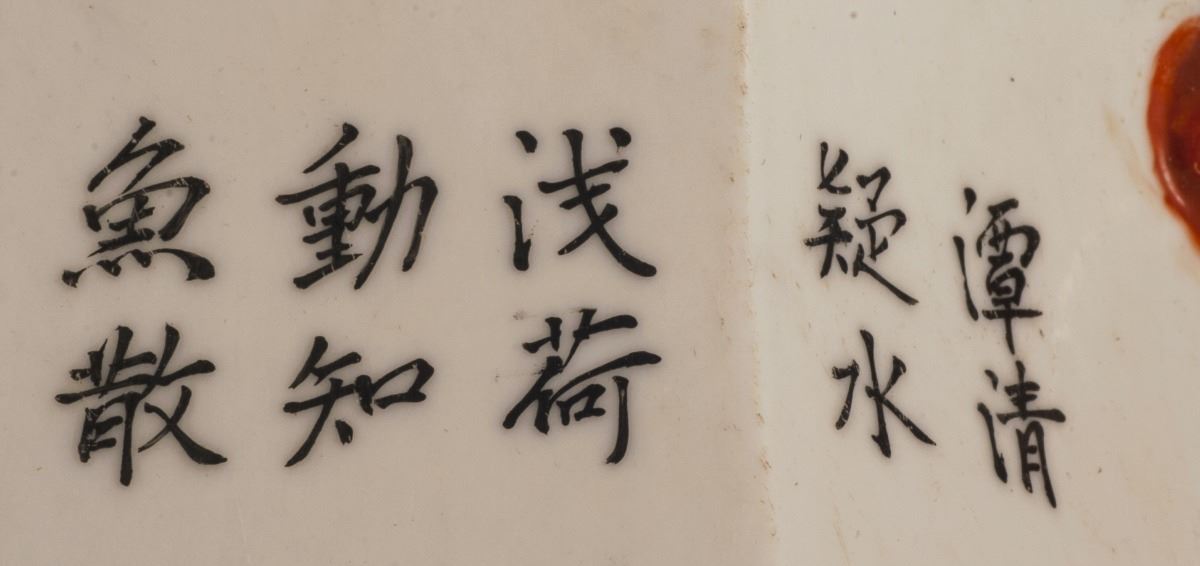 潭清
疑水
浅荷
動知
魚散